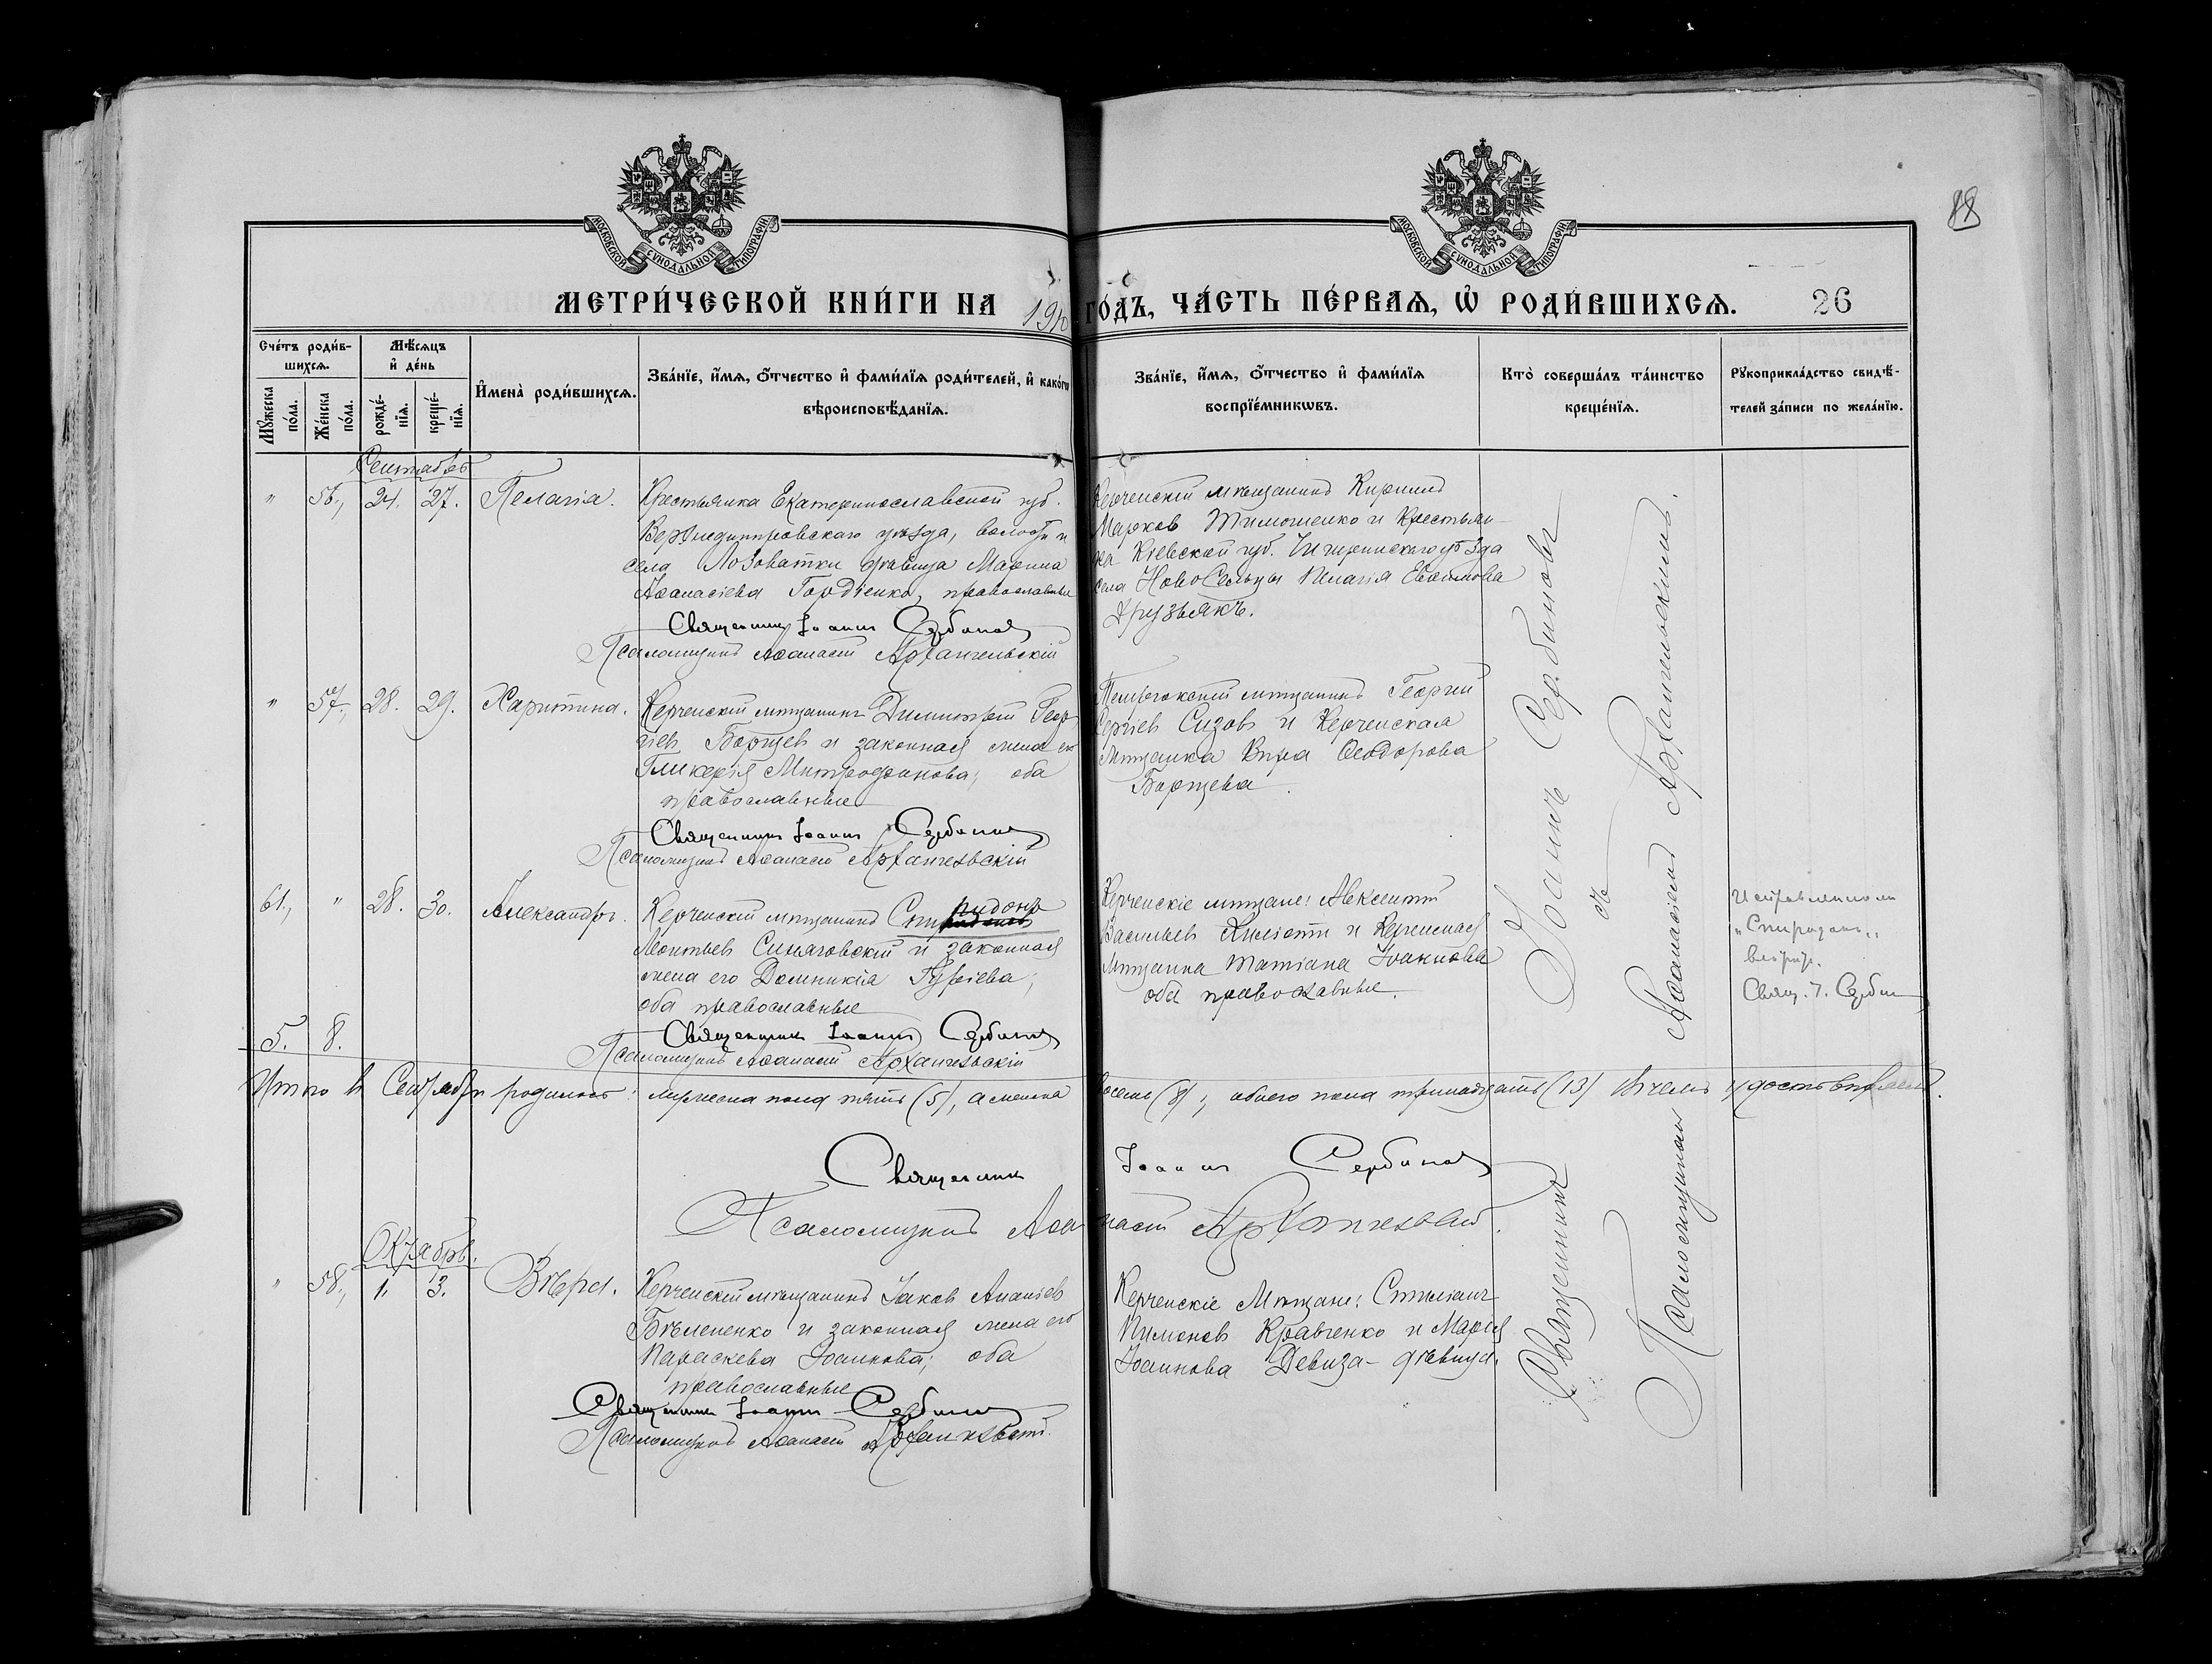 88
МОСКОВСКОЙ СѴНОДАЛЬНОЙ ТИПОГРАФІИ
МОСКОВСКОЙ СѴНОДАЛЬНОЙ ТИПОГРАФІИ
МЕТРИ́ЧЕСКОЙ КНИ́ГИ НА 191 ГО́ДЪ, ЧА́СТЬ ПЕ́РВАѦ, Ѡ҆ РОДИ́ВШИХСѦ. 26
Сче́тъ роди́вшихсѧ.
Мꙋ́жеска по́ла.
Же́нска по́ла.
Мѣ́сѧцъ и҆ де́нь
рожде́нїѧ.
креще́нїѧ.
И҆мена̀ роди́вшихсѧ.
Зва́нїе, и҆́мѧ, ѻ҆́тчество и҆ фами́лїѧ роди́телей, и҆ како́гѡ
вѣроисповѣ́данїѧ.
Зва́нїе, и҆́мѧ, ѻ҆́тчество и҆ фами́лїѧ
воспрїе́мникѡвъ.
Кто̀ соверша́лъ та́инство
креще́нїѧ.
Рꙋкоприкла́дство свидѣ́телей за́писи по жела́нїю.
Сентябрь
" 56., 24. 27. Пелагія.
Крестьянка Екатеринославской губ.
Верхнеднипровскаго уѣзда, волости и
села Лозоватки дѣвица Марина
Аѳанасіева Гордіенко, православные
Священникъ Іоаннъ Сербиновъ
Псаломщикъ Аѳанасій Архангельскій
Керченскій мѣщанинъ Кириллъ
Марковъ Тимошенко и Крестьян-
ка Кіевской губ. Чигиринскаго уѣзда
села НовоСельцы Пелагія Евѳимова
Друзьякъ.
" 57., 28. 29. Харитина.
Керченскій мѣщанинъ Димитрій Геор-
гіевъ Борщевъ и законная жена его
Гликерія Митрофанова; оба
православные
Священникъ Іоаннъ Сербиновъ
Псаломщикъ Аѳанасій Архангельскій
мѣщанинъ Георгій
Сергіевъ Сизовъ и Керченская
мѣщанка Вѣра Ѳеодорова
Борщева.
61., " 28. 30. Александръ.
Керченскій мѣщанинъ Спиридонъ
Леонтьевъ Синяговскій и законная
жена его Домникія Гуріева;
оба православные
Священникъ Іоаннъ Сербиновъ
Псаломщикъ Аѳанасій Архангельскій
Керченскіе мѣщане: Авксентій
Васильевъ и Керченская
мѣщанка Татіана Іоакимова
оба православные.
"Спиридонъ"
вѣрно.
Свящ. І. Сербин
5. 8.
Итого въ Сентябрѣ родилось: мужеска пола пять (5), а женска восемь (8); обоего пола тринадцать (13) въ чемъ удостовѣряемъ.
Священникъ Іоаннъ Сербиновъ
Псаломщикъ Аѳанасій Архангельскій.
Октябрь.
" 58., 1. 3. Вѣра.
Керченскій мѣщанинъ Іаковъ Ананіевъ
Бѣлененко и законная жена его
Параскева Іоаннова; оба
православные
Священникъ Іоаннъ Сербиновъ
Псаломщикъ Аѳанасій Архангельскій.
Керченскіе Мѣщане: Стиліанъ
Пименовъ Кравченко и Марія
Іоаннова Девиза - дѣвица.
Священникъ Іоаннъ Сербиновъ
съ
Псаломщикомъ Аѳанасіемъ Архангельскимъ.